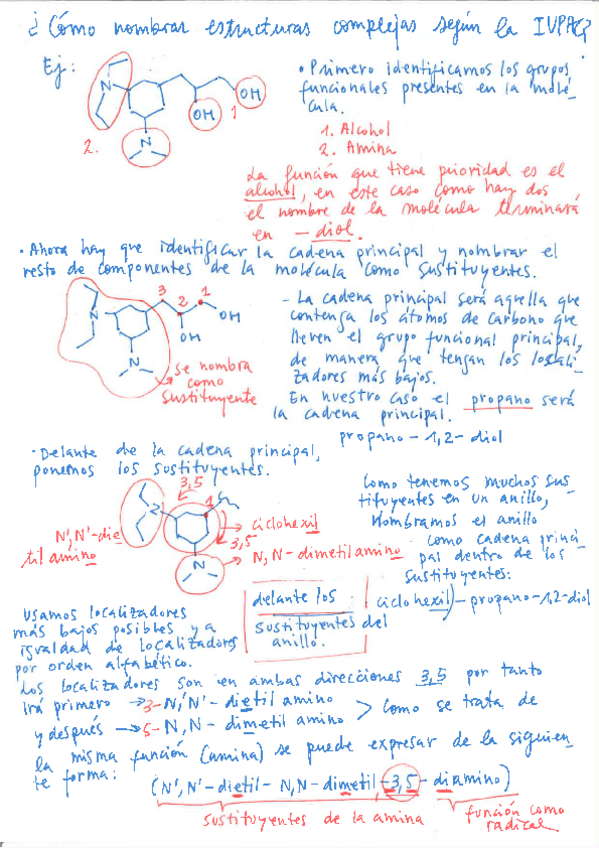 ¿Cómo nombrar estructuras complejas según la IUPAC?
Ej:
N
OH
OH
1
N
2.
• Primero identificamos los grupos
funcionales presentes en la molé-
cula.
1. Alcohol
2. Amina
La función que tiene prioridad es el
alcohol, en este caso como hay dos
el nombre de la molécula terminará
en - diol.
• Ahora hay que identificar la cadena principal y nombrar el
resto de componentes de la molécula como sustituyentes.
3
2
1
OH
OH
N
N
se nombra
como
sustituyente
- La cadena principal será aquella que
contenga los átomos de carbono que
lleven el grupo funcional principal,
de manera que tengan los locali-
zadores más bajos.
En nuestro caso el propano será
la cadena principal.
propano-1,2-diol
• Delante de la cadena principal,
ponemos los sustituyentes.
3,5
1
N
N,'N'-die
til amino
ciclohexil
3,5
N
N,N-dimetilamino
Como tenemos muchos sus-
tituyentes en un anillo,
nombramos el anillo
como cadena princi
pal dentro de los
sustituyentes:
delante los
sustituyentes del
anillo.
ciclohexil)-propano-1,2-diol
Usamos localizadores
más bajos posibles y a
igualdad de localizadores
por orden alfabético.
Los localizadores son en ambas direcciones 3,5 por tanto
irá primero → 3-N,'N'-dietil amino
y después → 5-N,N-dimetil amino
> Como se trata de
la misma función (amina) se puede expresar de la siguien
te forma:
(N',N'-dietil-N,N-dimetil-3,5-diamino)
sustituyentes de la amina
función como
radical